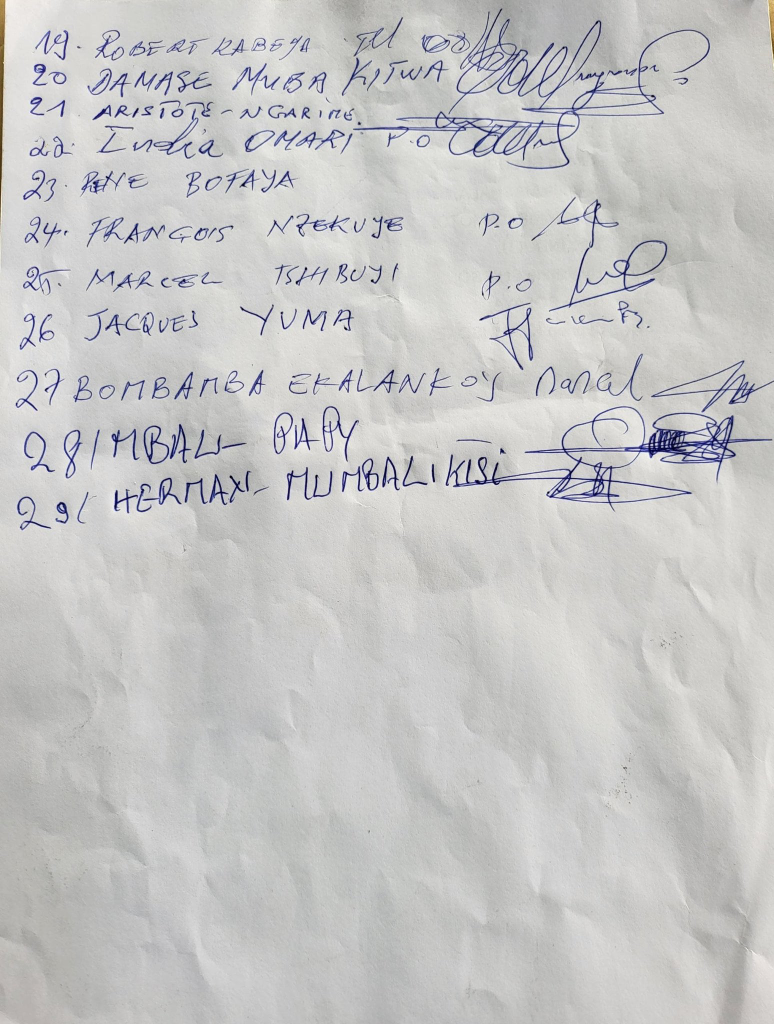 19. ROBERT KABEYA
20 DAMASE MUBA KITWA
21. ARISTOTE - NGARIME.
22. India OMARI P.O
23. RENE BOFAYA
24. FRANÇOIS NZEKUYE P.O
25. MARCEL TSHIBUYI P.O
26 JACQUES YUMA
27 BOMBAMBA EKALANKOY Marcel
28/ MBALI - PAPY
29/ HERMAN - MUMBALIKISI